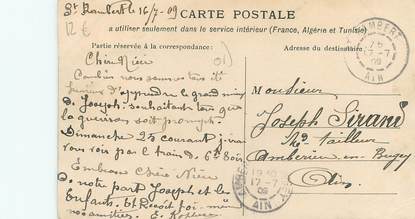 St Rambert le 16/7-09
12 €
CARTE POSTALE
a utiliser seulement dans le service intérieur (France, Algérie et Tunisie)
Partie réservée à la correspondance:
Adresse du destinataire
Chère Nièce
Combien nous sommes tous
d'apprendre le grand
Joseph. Souhaitant que
la guérison soit prompte.
Dimanche 25 courant j'irai
vous voir par le train de 6h soir
Embrasse Chère Nièce
de notre part Joseph et les
Enfants. Et
nos amitiés. E.
Monsieur
Joseph Sirand
Md tailleur
Ambérieu-en-Bugey
Ain
RAMBERT
17-7
09
AIN
17-7
09
AIN